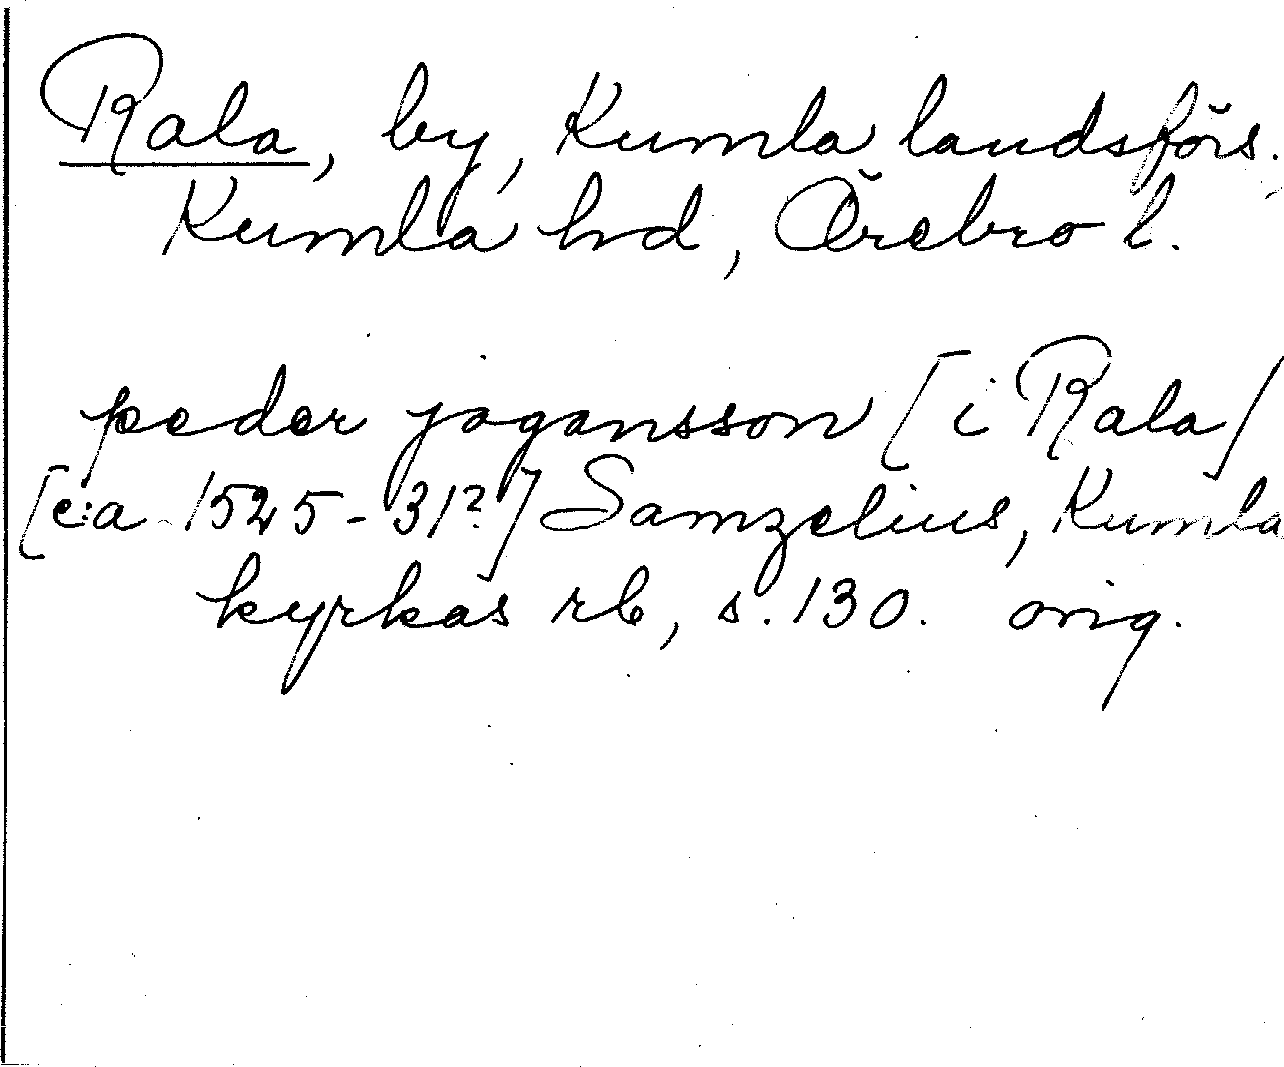 Rala, by, Kumla landsförs.,
Kumla hd, Örebro l.
peder jogansson [i Rala]
[c:a 1525-31?] Samzelius, Kumla
kyrkas rb, s. 130. orig.